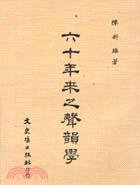 陳新雄著
六十年來之聲韻學
文史哲出版社印行